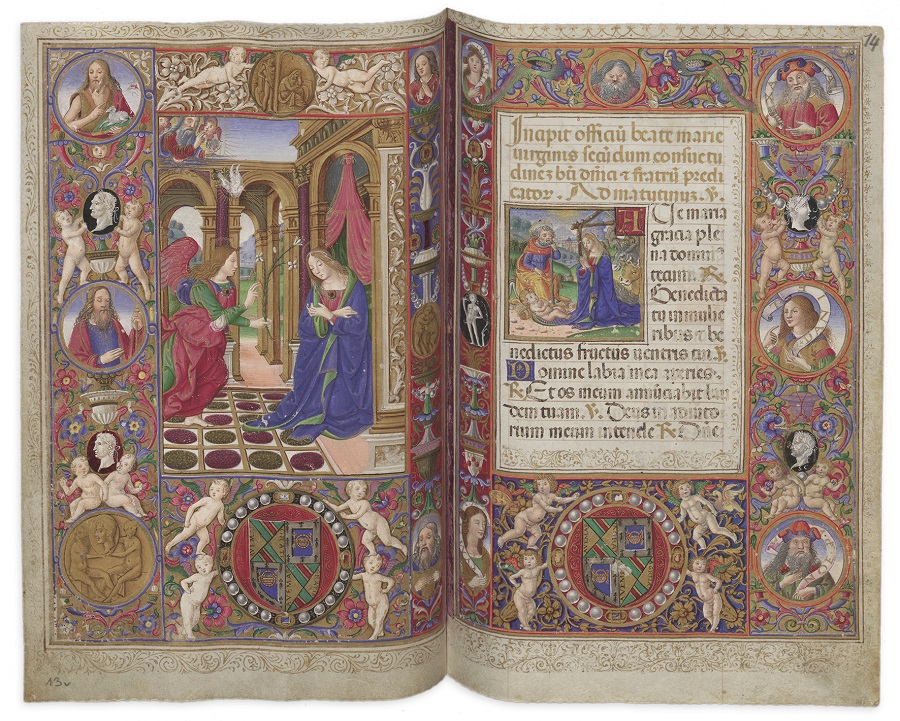 14
Incipit officiū beate marie
virginis secūdum consuetu
dinez bti dn̄ici & fratrū predi
cator. Ad matutinuz. V.
AUe maria
gracia ple
na domin
tecum. R
Benedicta
tu in mulie
ribus & be
nedictus fructus ventris tui. V.
Domine labia mea aperies.
R. Et os meum annūciabit lau
dem tuam. V. Deus in adiuto
rium meum intende R Dn̄e
13v